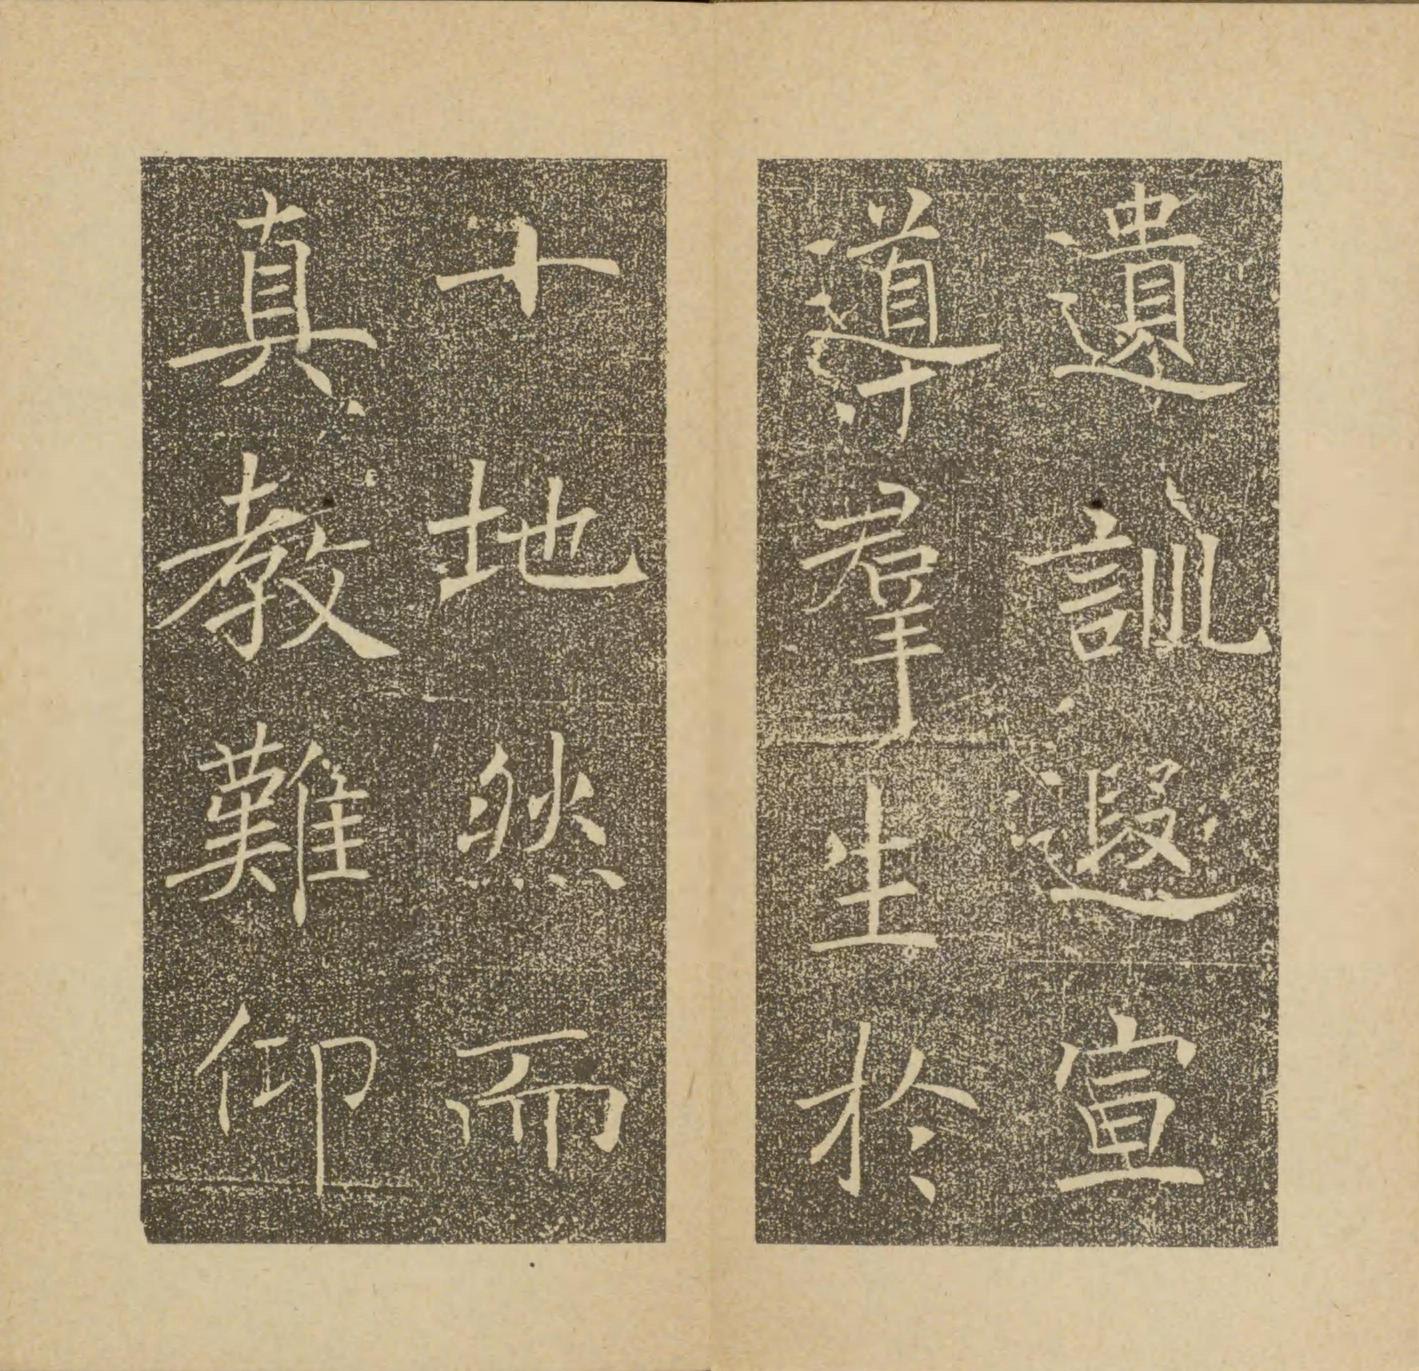 遺訓遐宣
導羣生於
十地然而
真教難仰